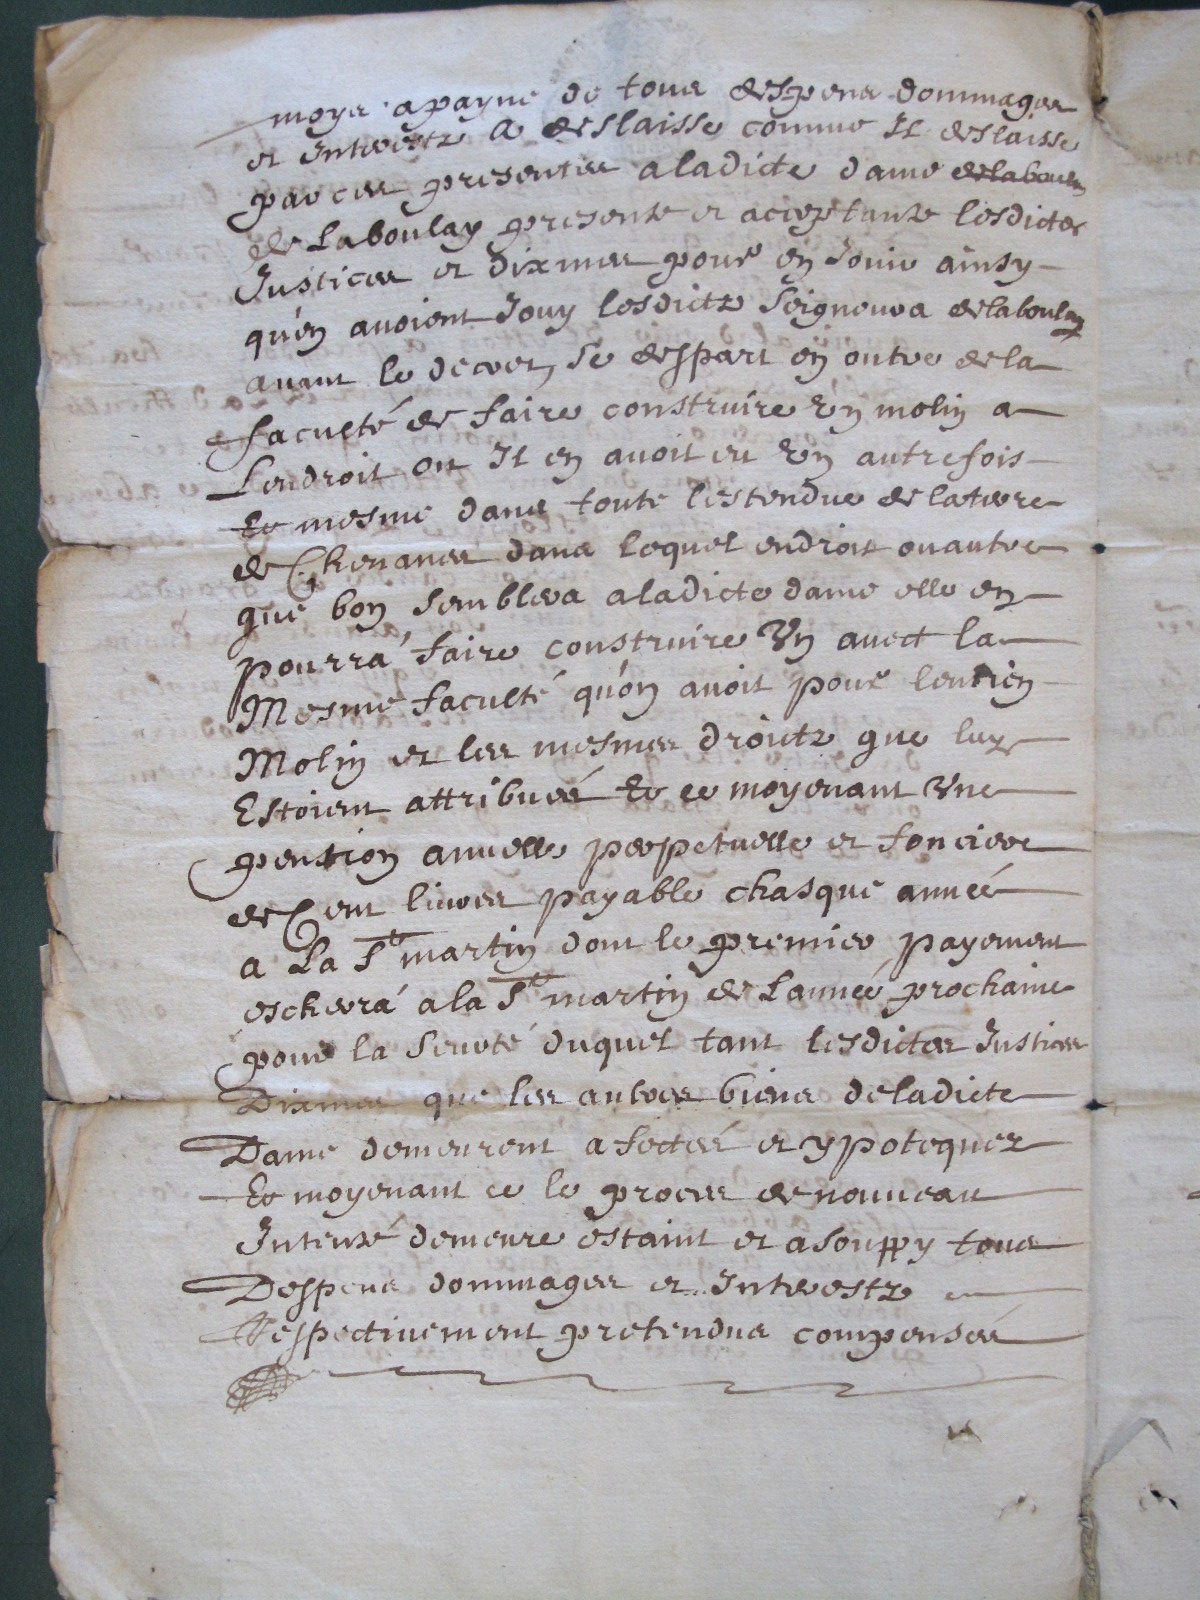 moys a payne de tous despens dommages
et Interestz A deslaisse comme Il deslaisse
par ces presentes a ladicte dame
de Laboulay presente et acceptante lesdictes
Justices et dixmes pour en Jouir ainsy
qu'en avoient Jouy lesdictz Seigneurs delaboulay
avant le decret, se despart en outre de la
faculté de faire construire Un molin a
Lendroit ou Il en avoit eu Un autrefois
Et mesme dans toute lestendue de laterre
de Chenanes dans lequel endroit ou autre
que bon semblera a ladicte dame elle en
pourra faire construire Un avect la
Mesme faculté qu'on avoit pour lentien
Molin et les mesmes droictz que luy
Estoient attribués Et ce moyenant Une
pention annuelle perpetuelle et fonciere
de Cent livres payable chasque année
a La St martin dont le premier payement
escherra a la St martin de Lannée prochaine
pour la seureté duquel tant lesdictes Justices
Dixmes que les autres biens de ladicte
Dame demeurent afectés et ypotequez
Et moyenant ce le proces de nouveau
Intenté demeure estaint et asouppy tous
Despens dommages et Interestz
Respectivement pretendus compensés